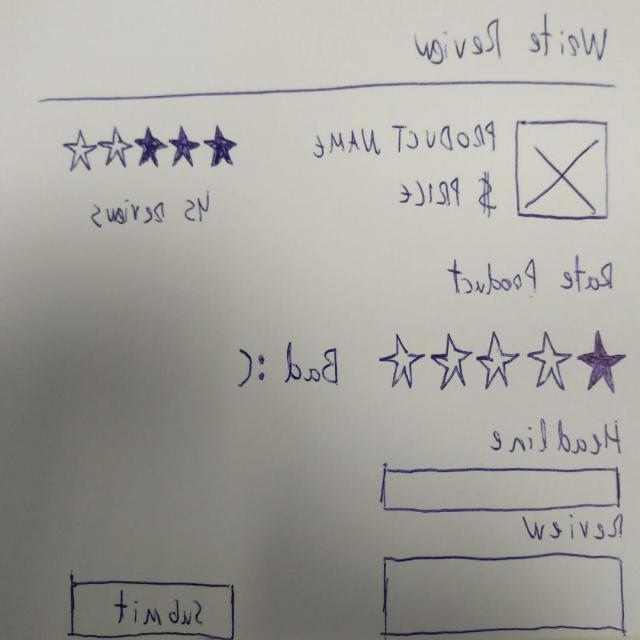 Write Review
PRODUCT NAME
$ PRICE
45 reviews
Rate Product
Bad :(
Headline
Review
Submit